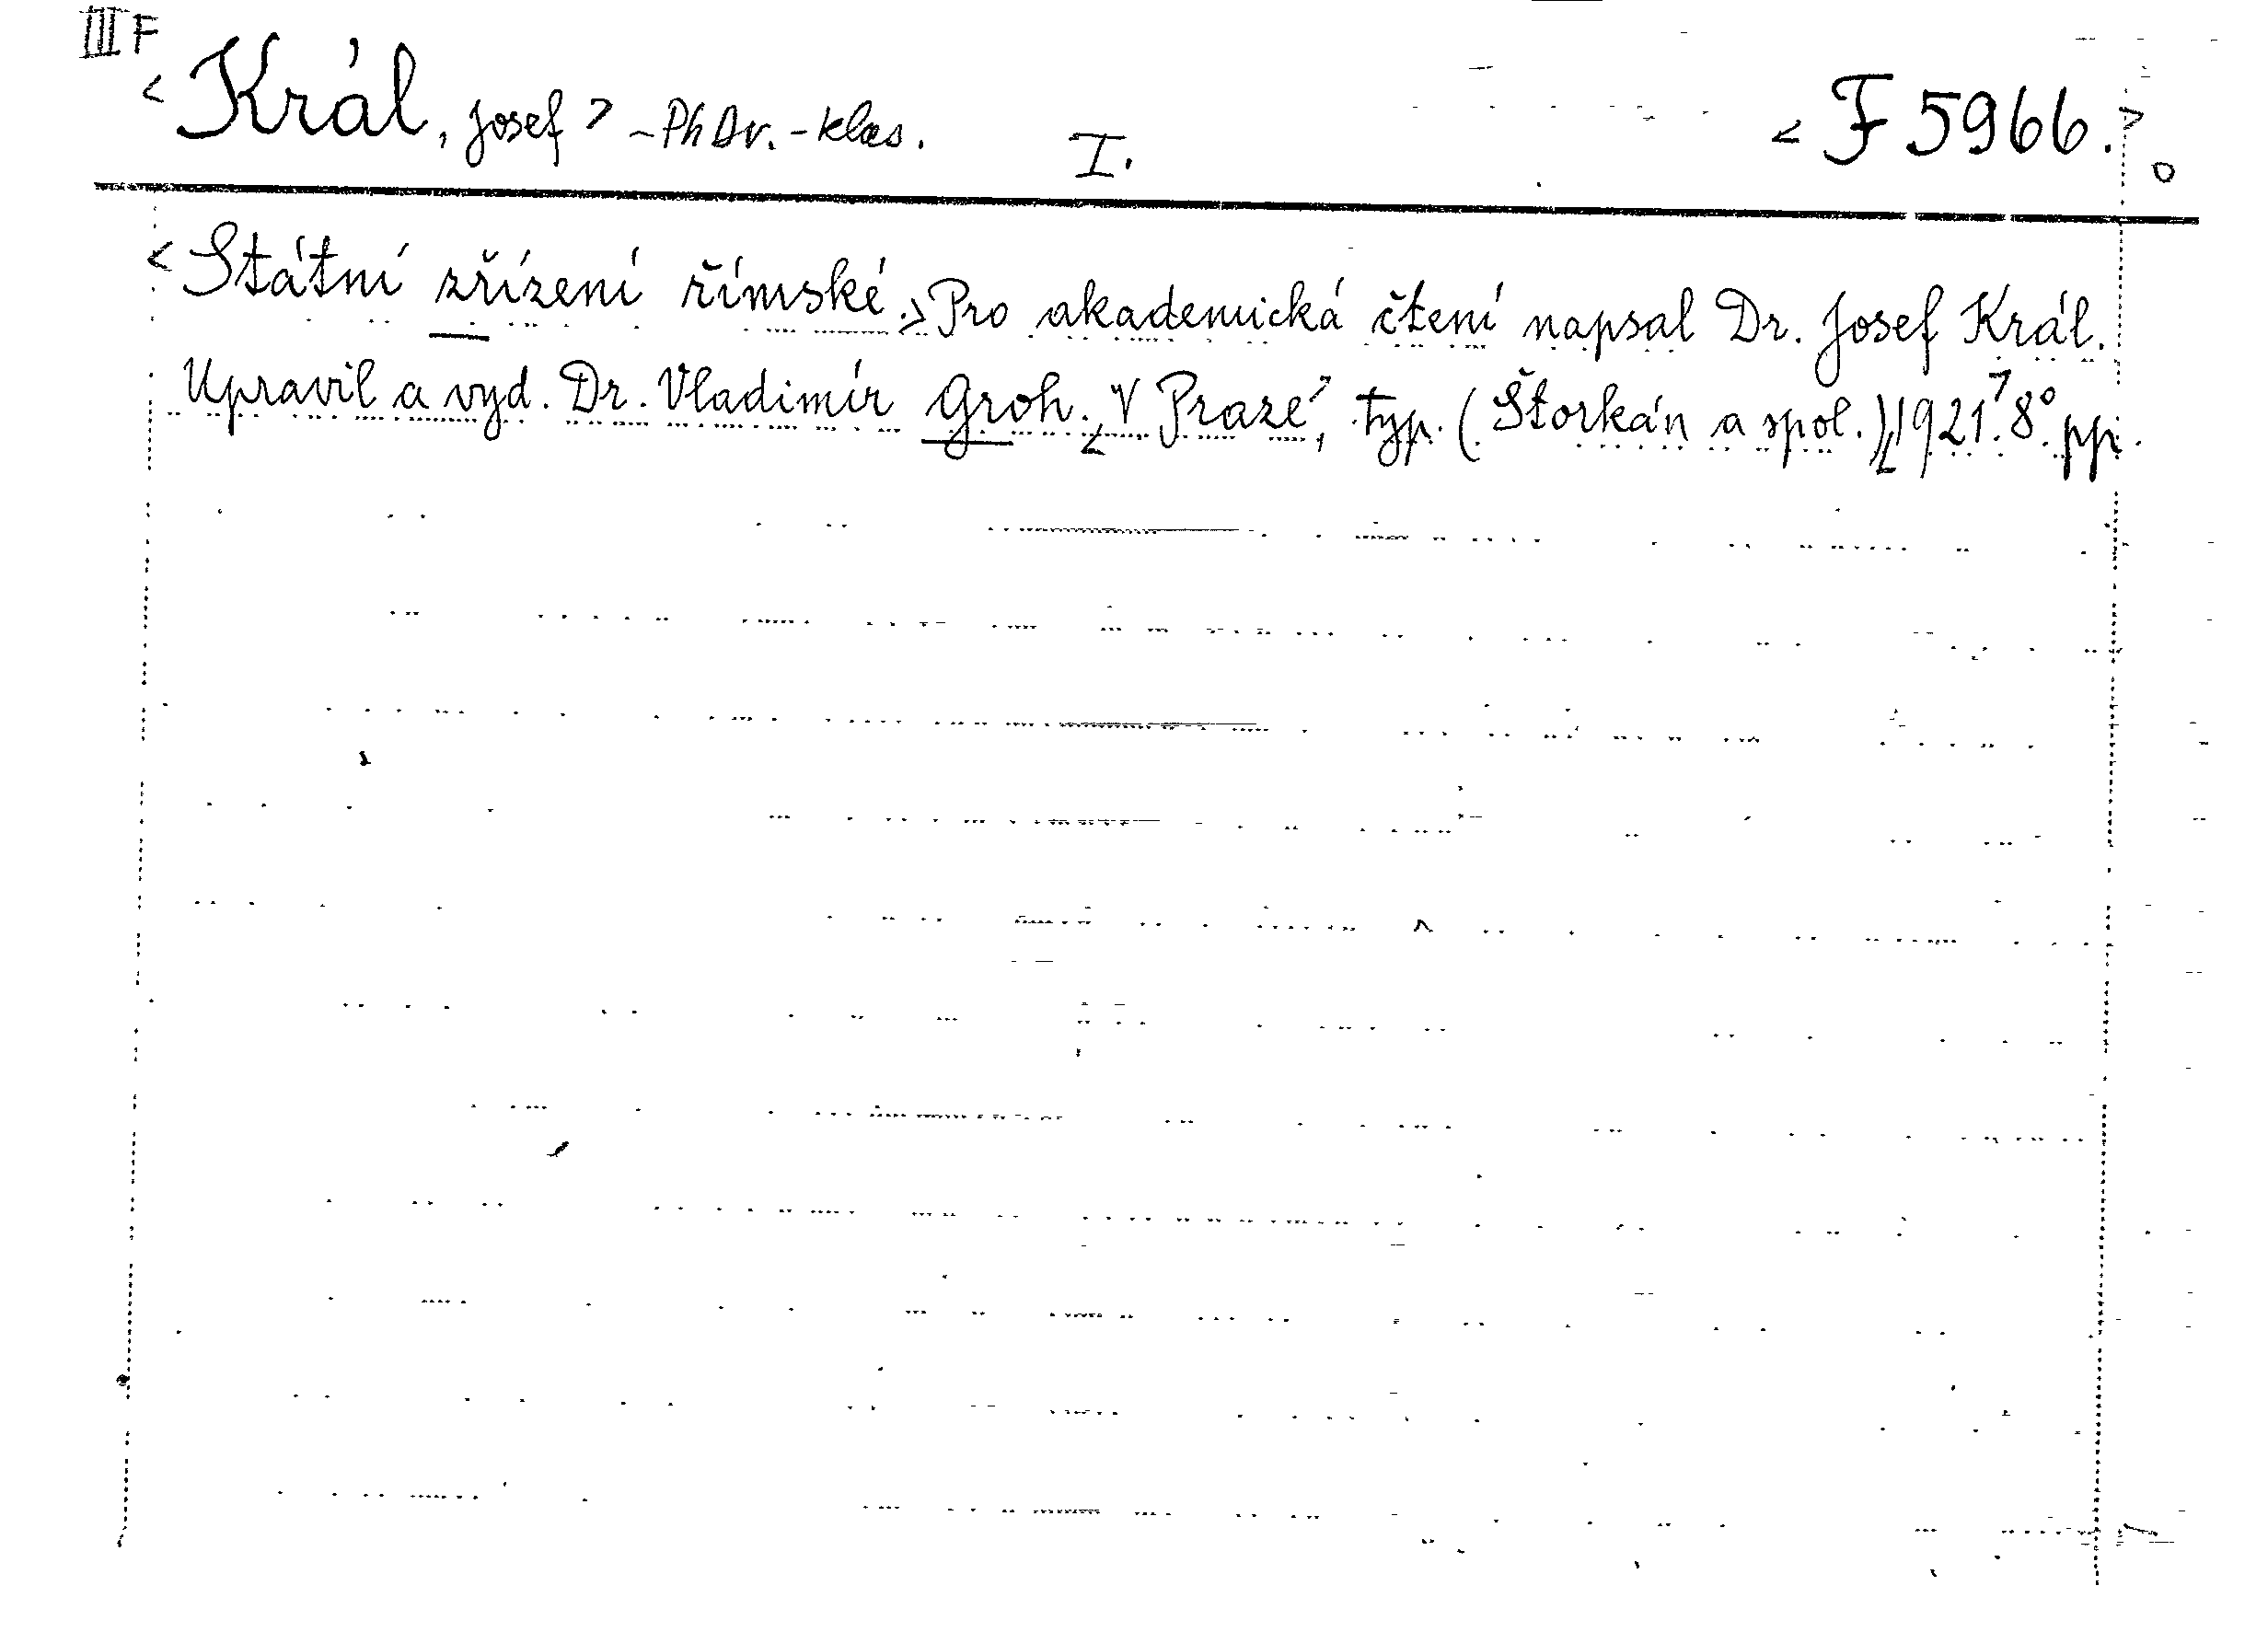 III F
< Král, Josef > - PhDr. - klas. I. < F 5966. >
< Státní zřízení římské. > Pro akademická čtení napsal Dr. Josef Král.
Upravil a vyd. Dr. Vladimír Groh. < V Praze, > typ. (Štorkán a spol.), < 1921. > 8°. pp.